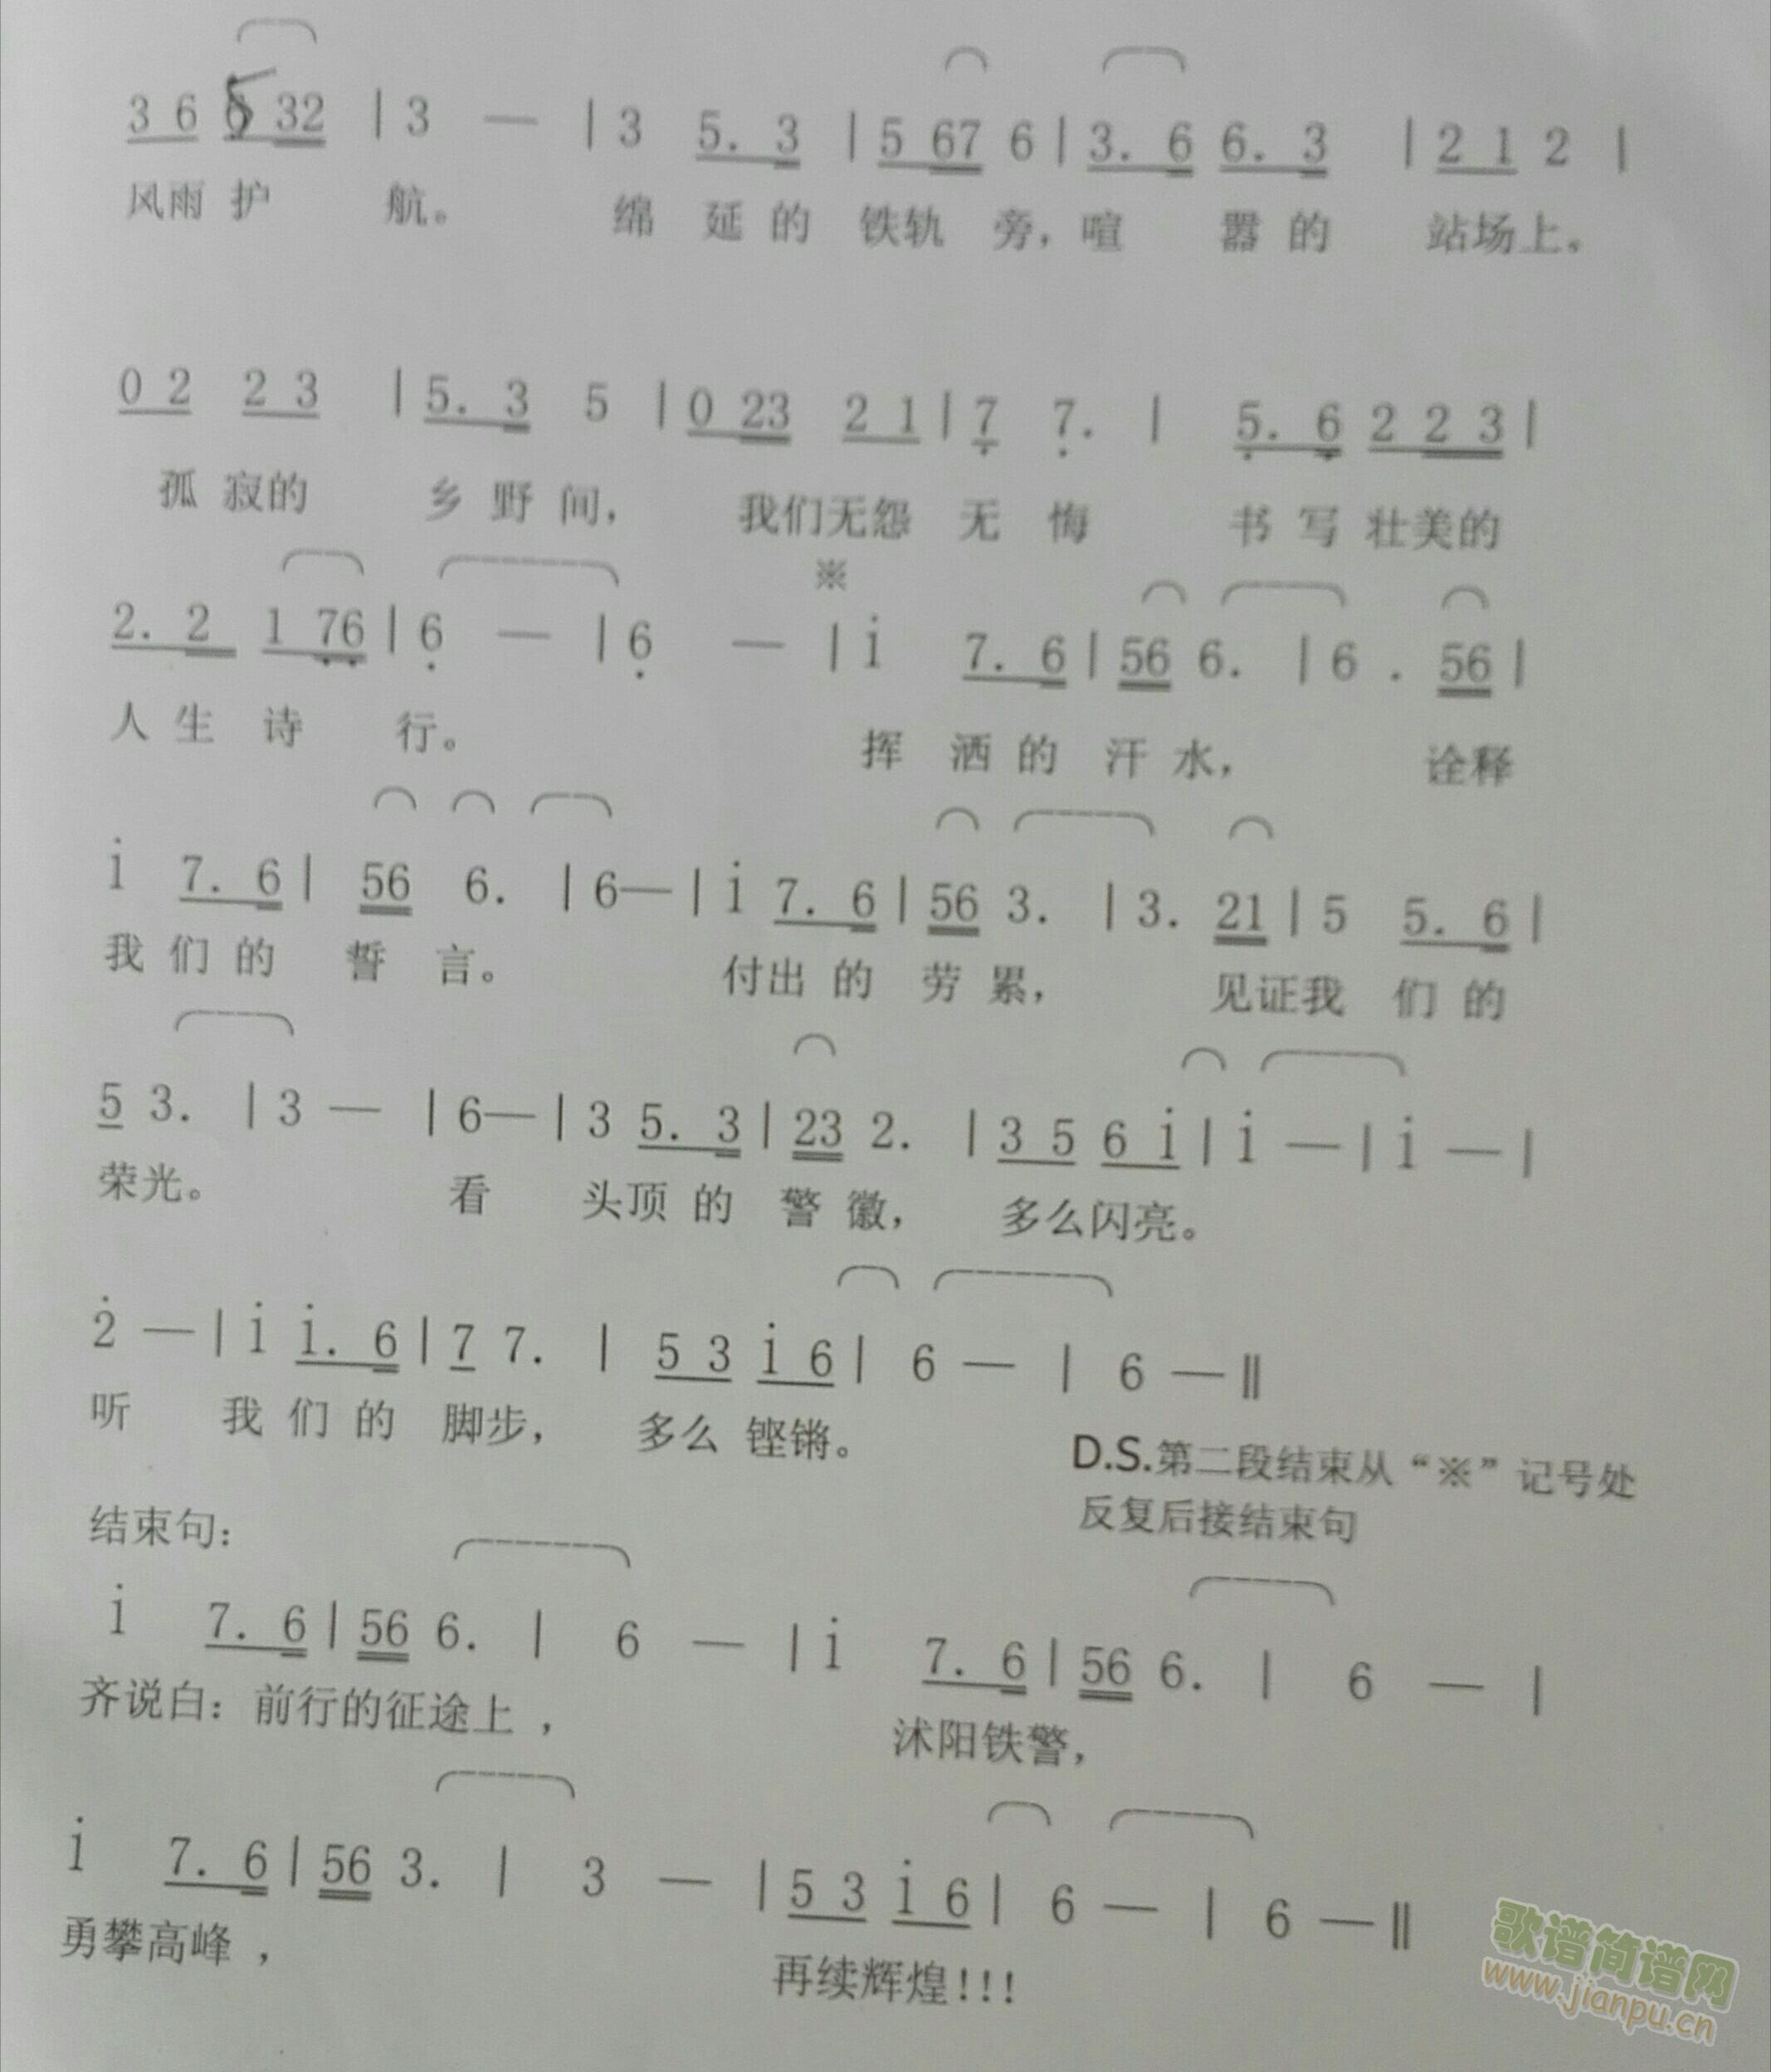 3 6 6 32 | 3 — | 3 5. 3 | 5 67 6 | 3. 6 6. 3 | 2 1 2 |
风雨 护 航。 绵 延 的 铁轨 旁，喧 嚣 的 站场上。
0 2 2 3 | 5. 3 5 | 0 23 2 1 | 7̣ 7̣. | 5̣. 6̣ 2 2 3 |
孤 寂的 乡 野 间， 我们无怨 无 悔 书 写 壮美的
※
2. 2 1 7̣6̣ | 6̣ — | 6̣ — | i 7. 6 | 56 6. | 6 . 56 |
人 生 诗 行。 挥 洒 的 汗 水， 诠释
i 7. 6 | 56 6. | 6— | i 7. 6 | 56 3. | 3. 21 | 5 5. 6 |
我 们 的 誓 言。 付出 的 劳 累， 见证我 们 的
5 3. | 3 — | 6— | 3 5. 3 | 23 2. | 3 5 6 i | i — | i — |
荣光。 看 头顶 的 警 徽， 多么闪亮。
2̇ — | i i. 6 | 7 7. | 5 3 i 6 | 6 — | 6 — ‖
听 我 们 的 脚步， 多么 铿锵。
D.S.第二段结束从“※”记号处
反复后接结束句
结束句：
i 7. 6 | 56 6. | 6 — | i 7. 6 | 56 6. | 6 — |
齐说白：前行的征途上， 沭阳铁警，
i 7. 6 | 56 3. | 3 — | 5 3 i 6 | 6 — | 6 — ‖
勇攀高峰， 再续辉煌！！！
歌谱简谱网
www.jianpu.cn